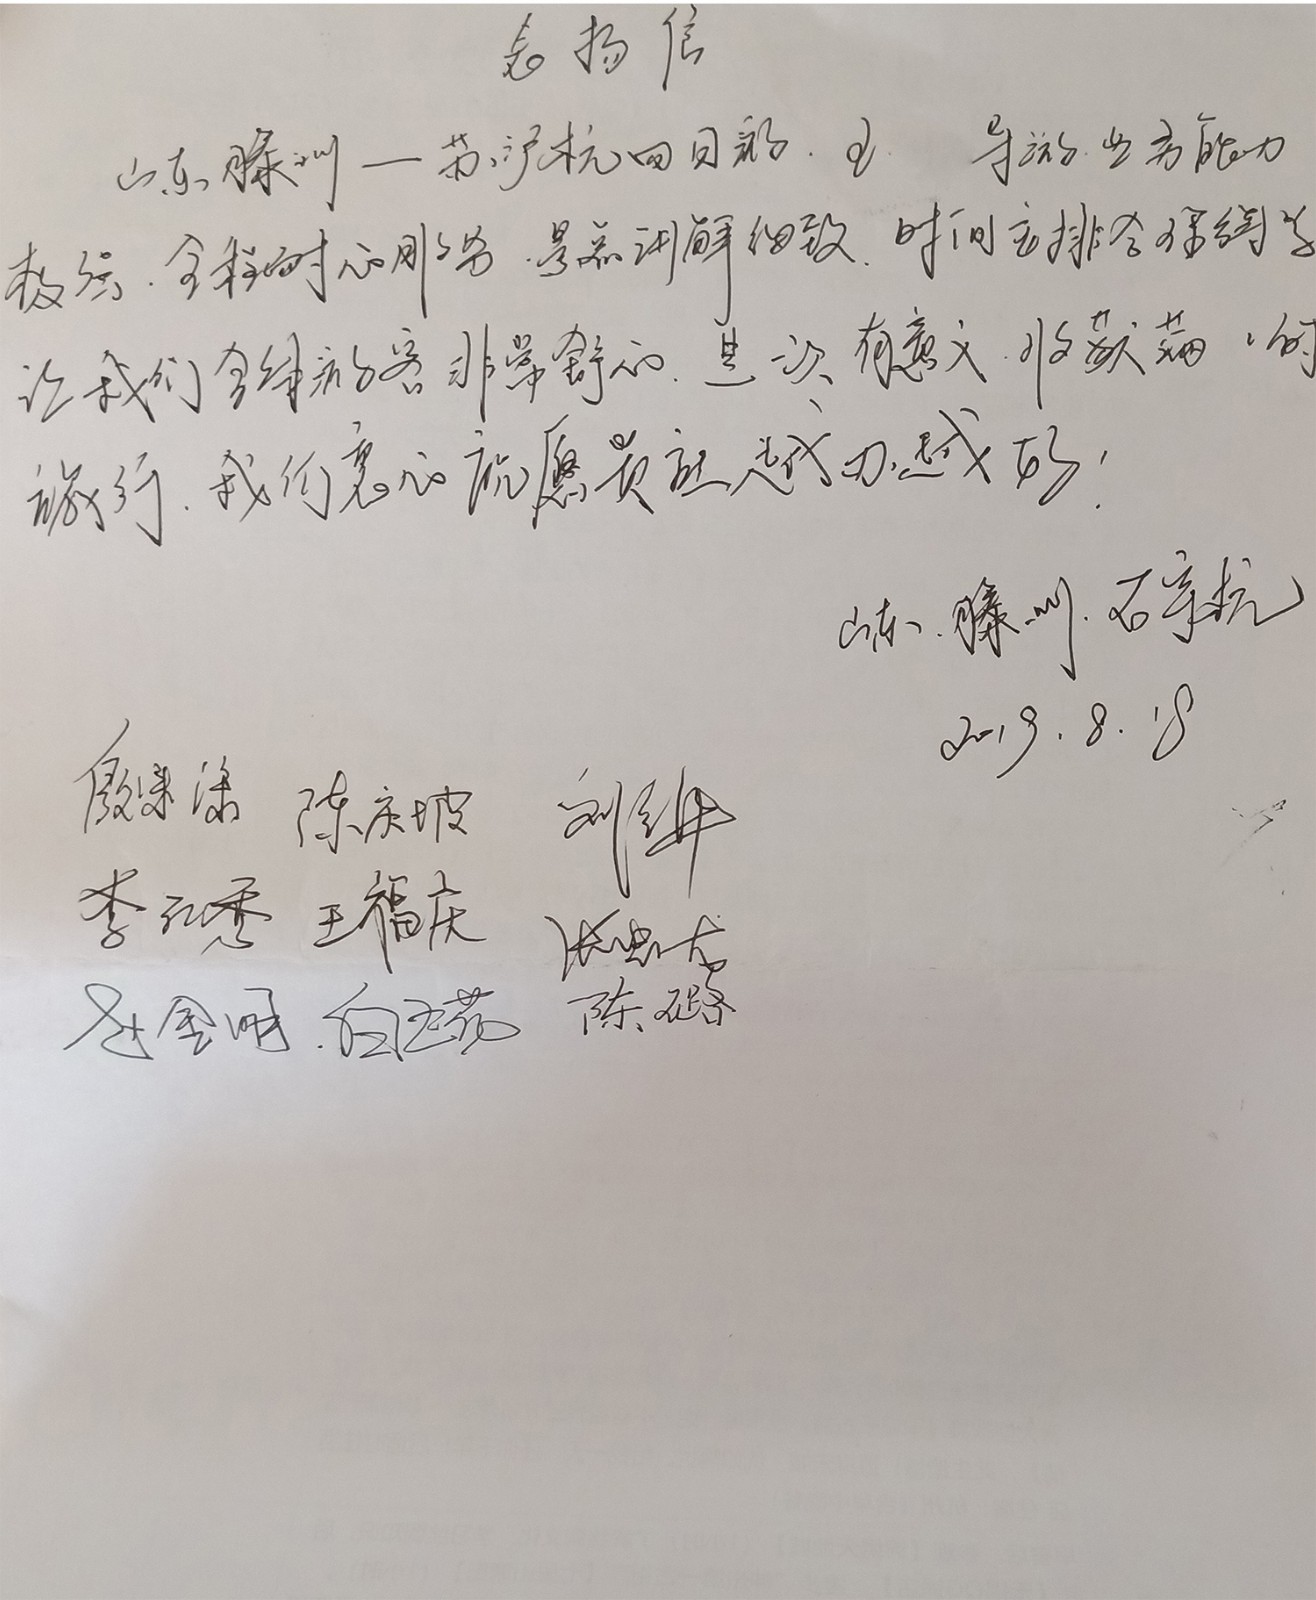 表扬信
山东滕州一苏沪杭四日游. 王 导游业务能力
极强. 全程耐心服务. 景点讲解细致. 时间安排合理
让我们全体游客非常舒心. 是一次有意义. 收获满的
旅行. 我们衷心祝愿贵社越办越好!
山东. 滕州. 石宗抗
2019.8.18
陈庆坡 刘
李红秀 王福庆
赵金明. 白玉花 陈璐